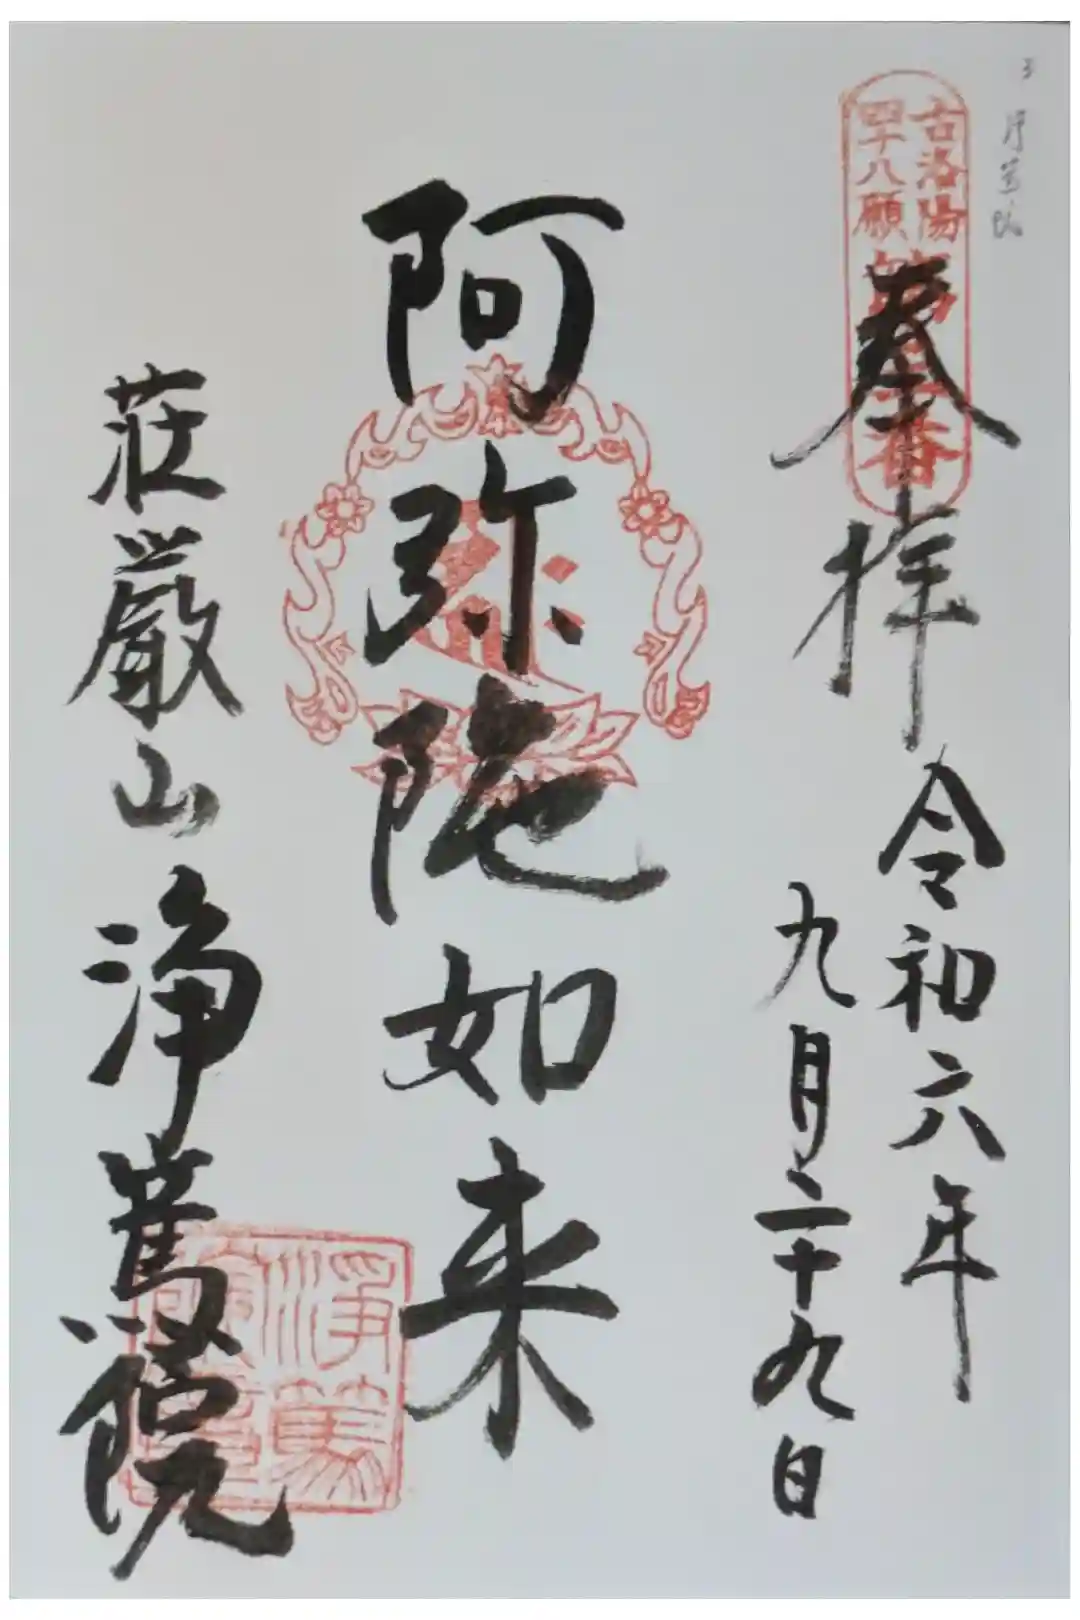 古洛陽
四十八願
奉拝
令和六年
九月二十九日
阿弥陀如来
荘厳山浄篤院
浄篤